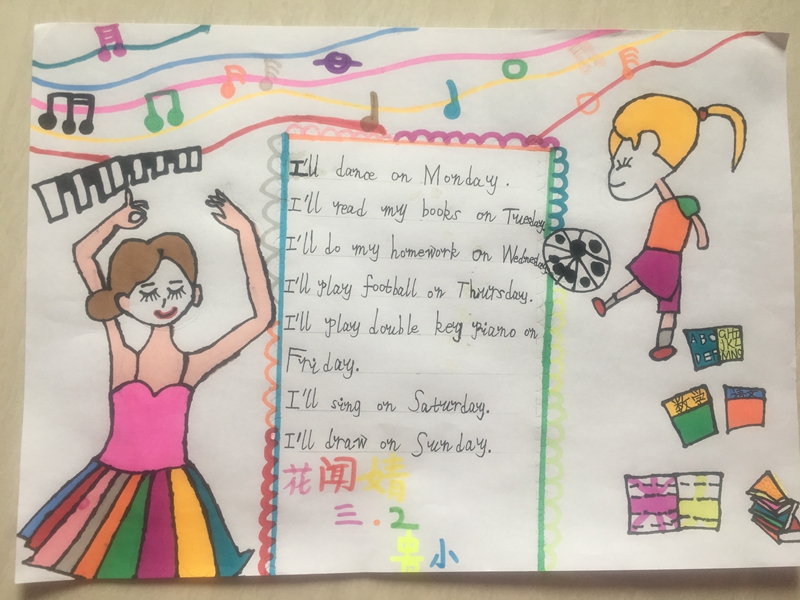 I'll dance on Monday.
I'll read my books on Tuesday
I'll do my homework on Wednesday
I'll play football on Thursday.
I'll play double key piano on
Friday.
I'll sing on Saturday.
I'll draw on Sunday.
花闻婧
三.2
小
ABC
DEF
GHI
JKL
MNO
数学